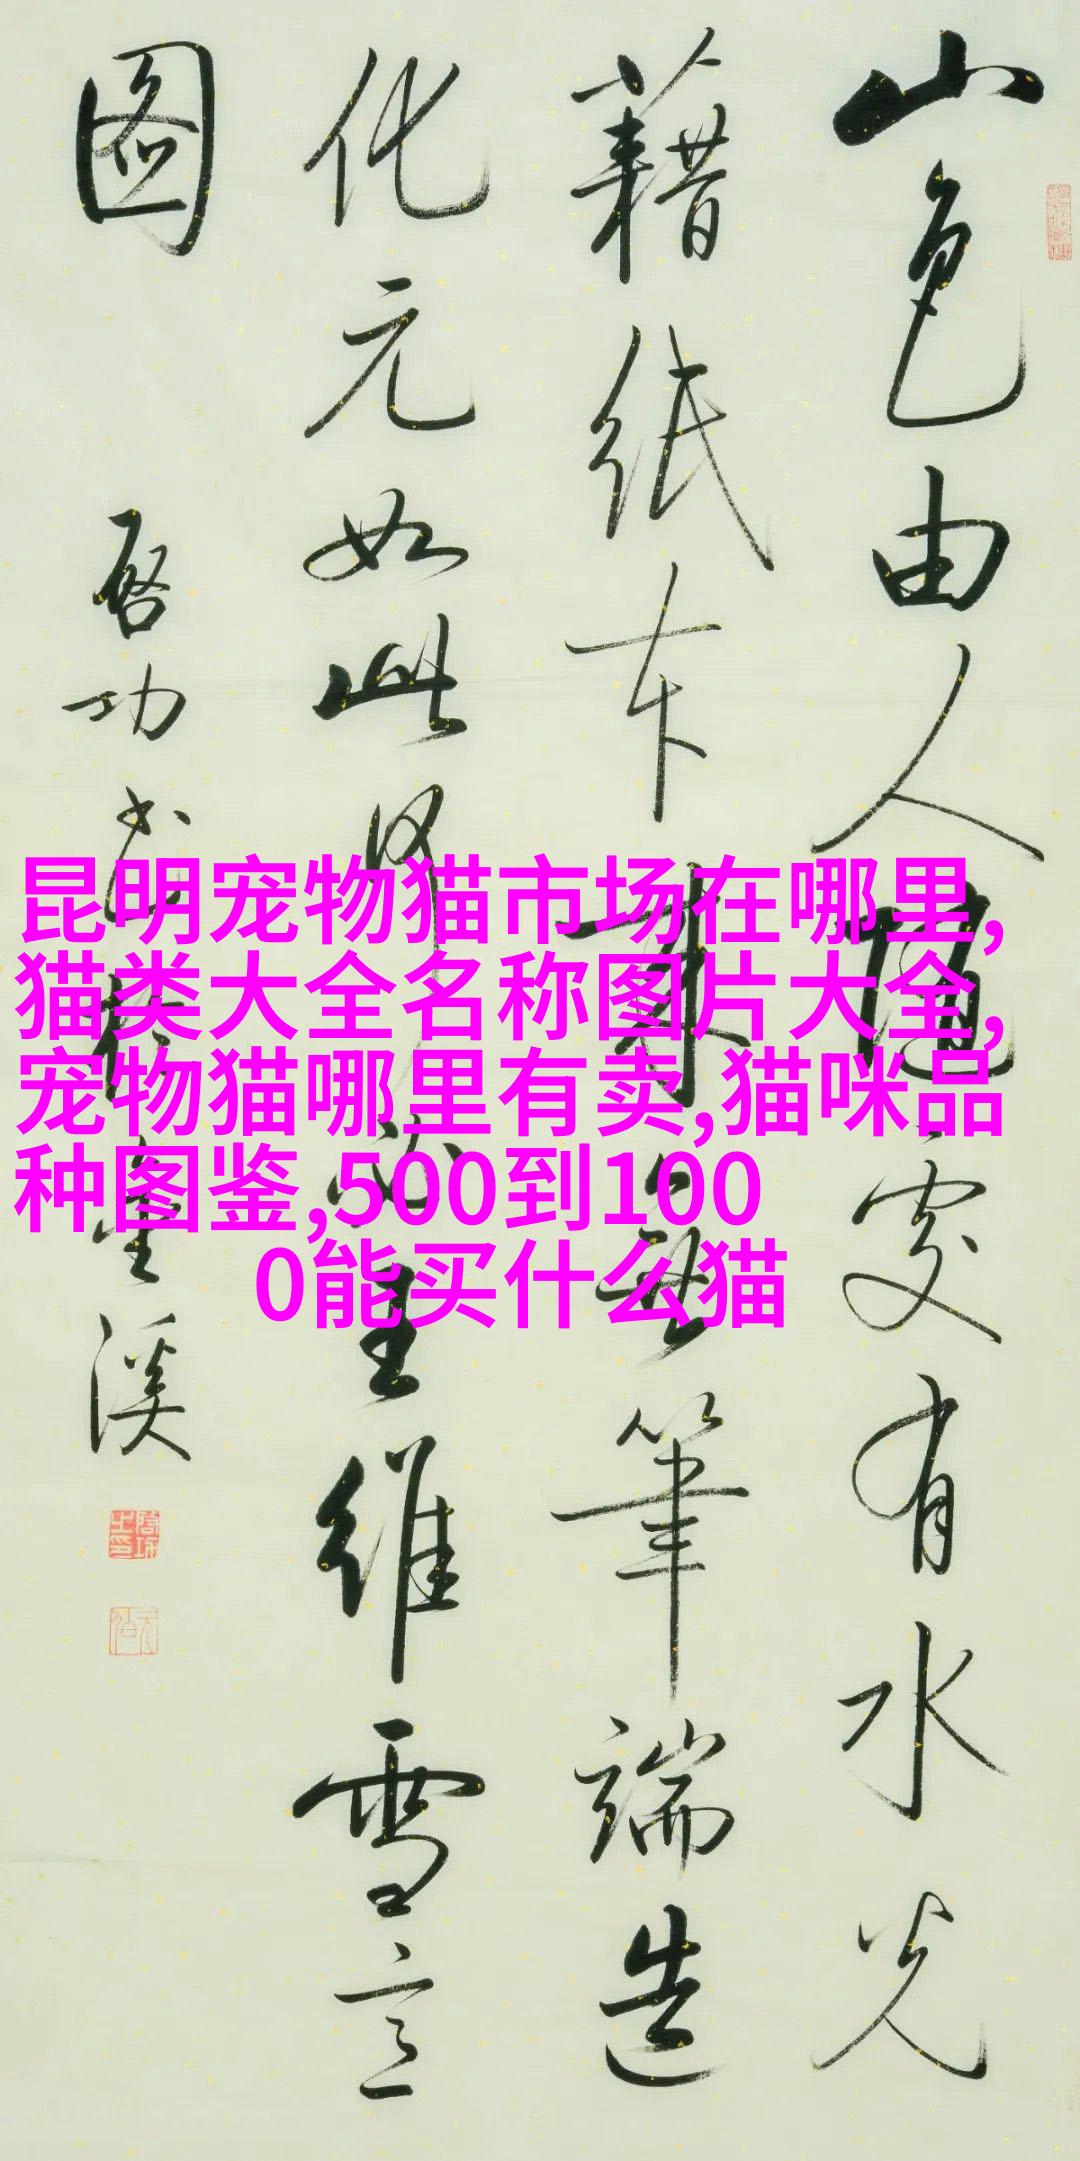 山色由人隨處有水光
藉紙本來無筆端造
化元如此何必王維雪意
圖
啓功書 溪
昆明宠物猫市场在哪里,
猫类大全名称图片大全,
宠物猫哪里有卖,猫咪品
种图鉴,500到100
0能买什么猫